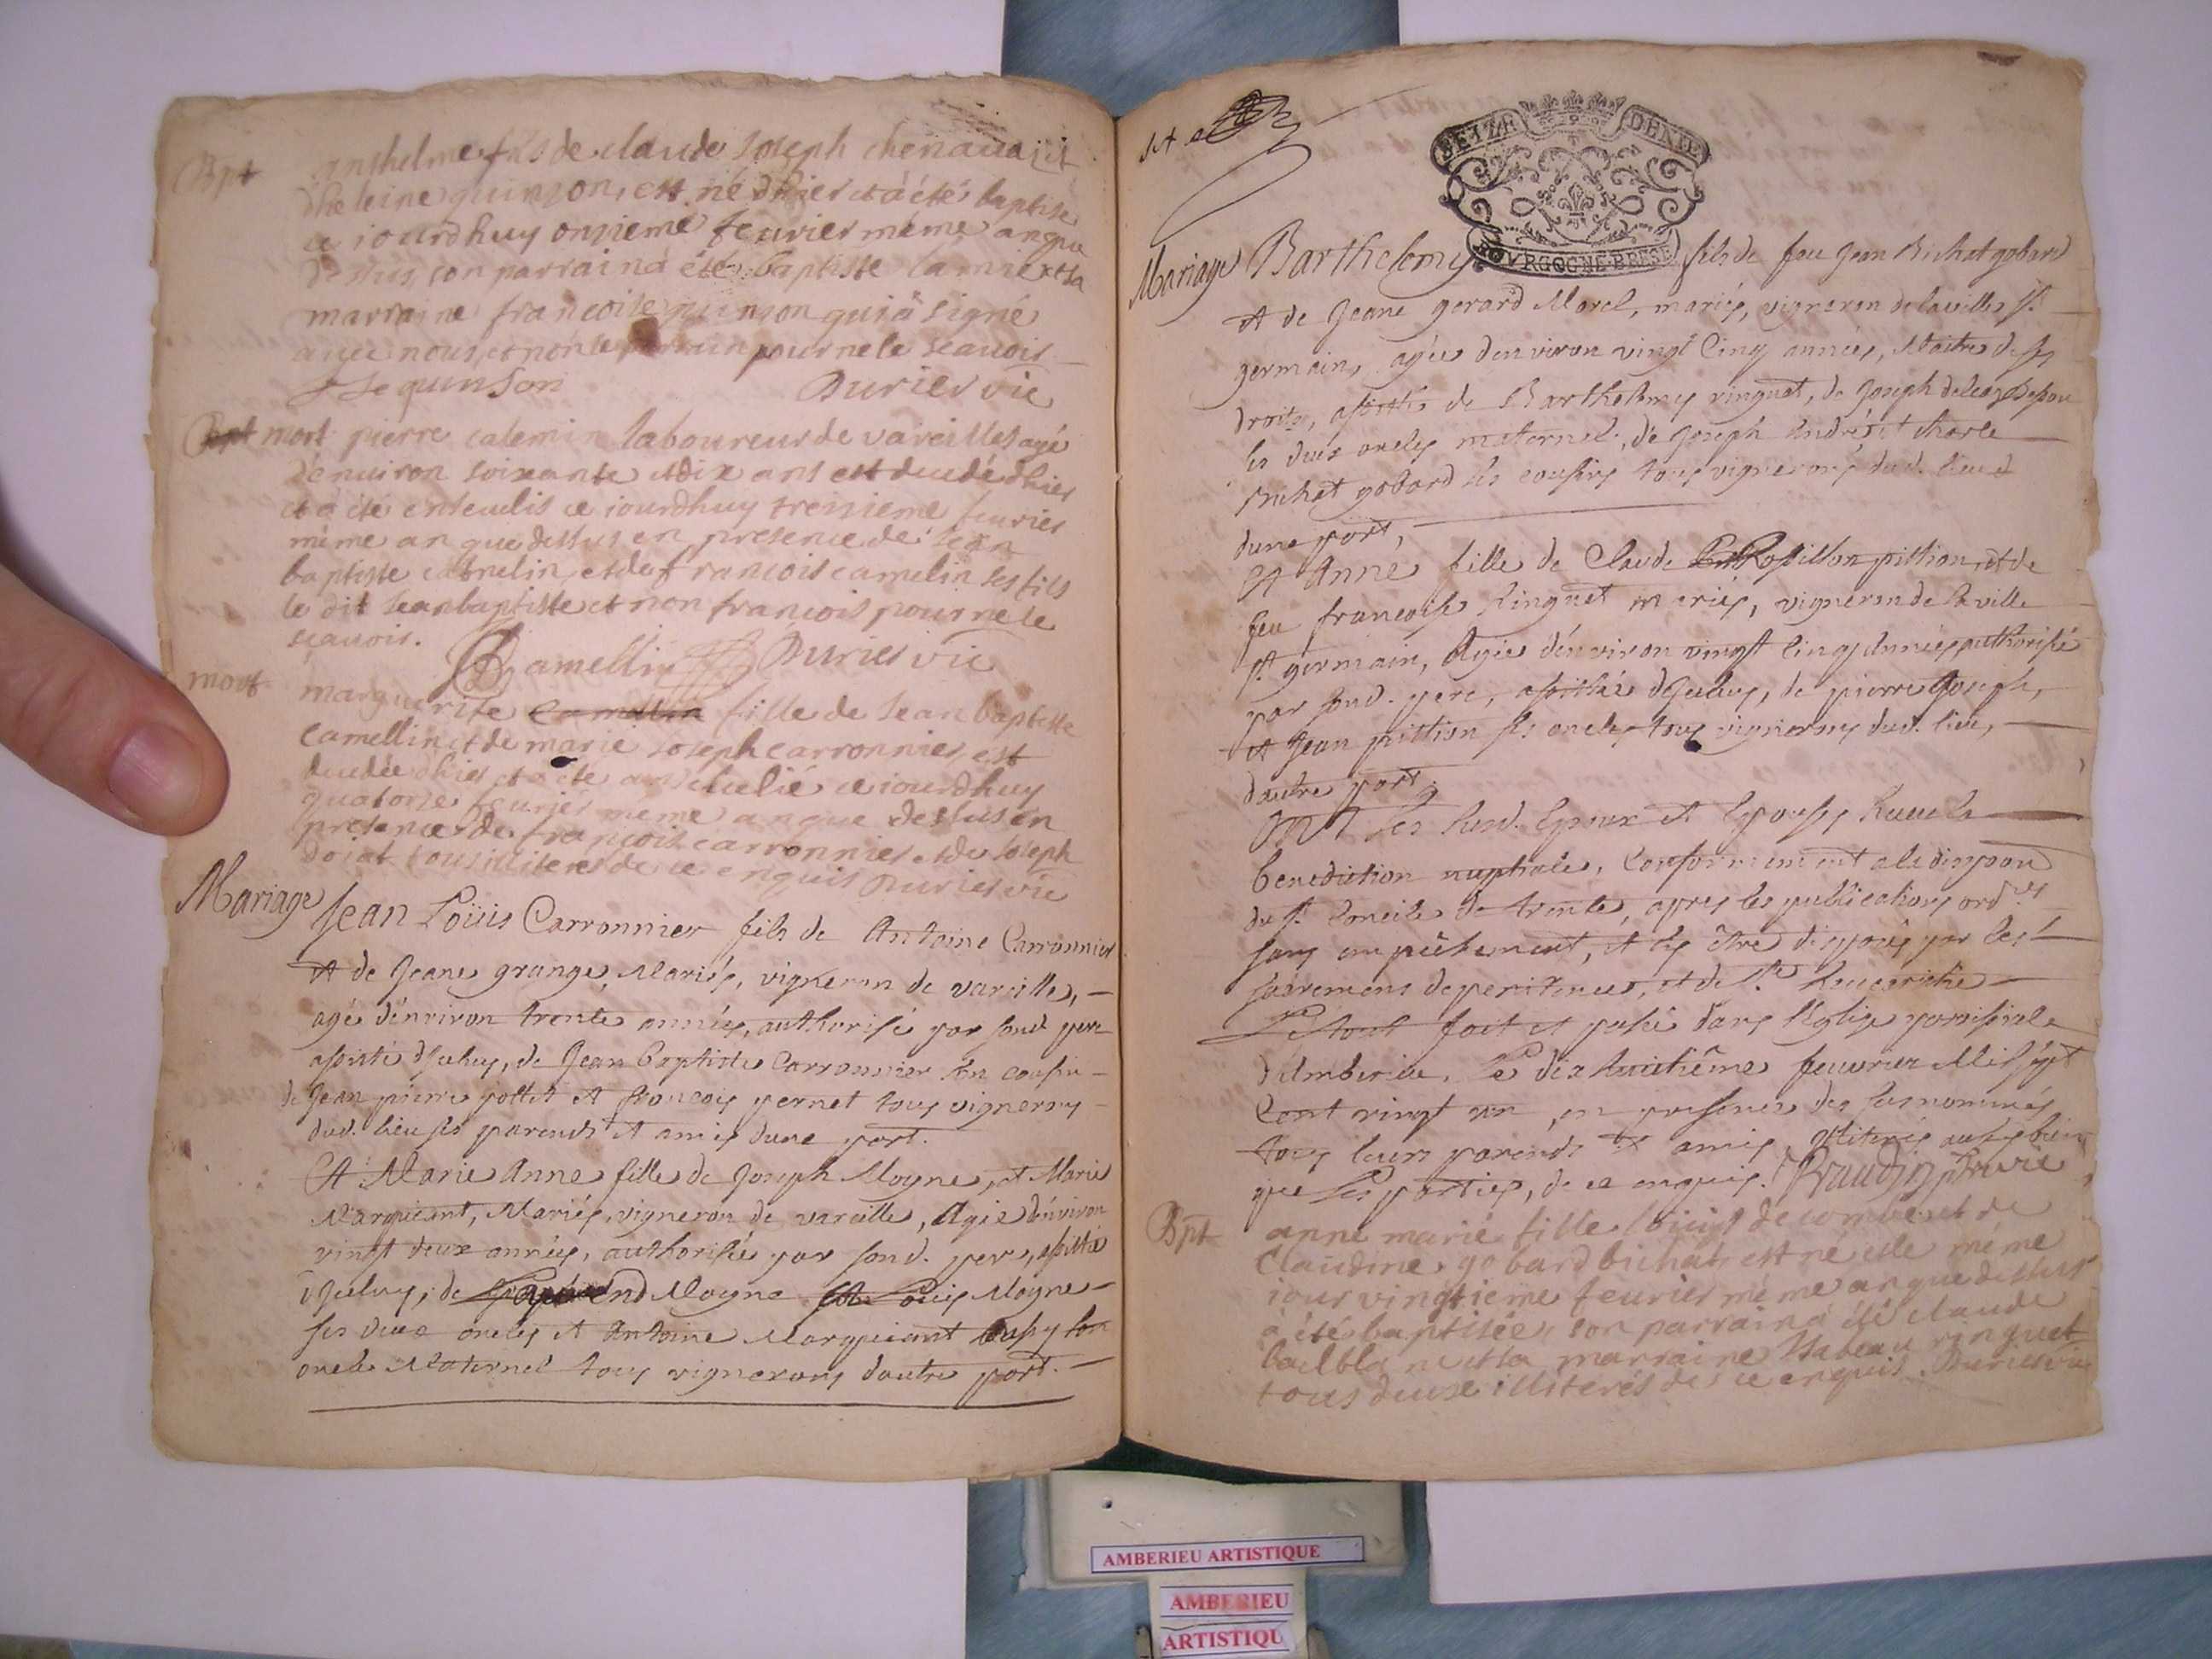 Bpt anthelme fils de claude Joseph chenavait
dheleine quinson, est né dhier et a été baptise
ce iourdhuy onzieme feuvrier méme an que
dessus, son parrain a été baptiste lamie et sa
marraine francoise quinson qui a signé
avec nous, et non le parrain pour ne le scauoir
quinson Durier vic
mort pierre calemin laboureur de vareilles agé
denuiron soixante et dix ans est decedé dhier
et a été enseuelis ce iourdhuy treizieme feurier
méme an que dessus en presence de Jean
baptiste camelin, et de francois camelin ses fils
le dit Jean baptiste et non francois pour ne le
scauoir.
Camellin Durier vic
mort marguerite camellin fille de Jean baptiste
Camellin et de marie Joseph carronnier, est
decedée dhier et a été enseuelie ce iourdhuy
quatorze feurier méme an que dessus en
presence de francois carronnier et de Joseph
tous illiteres de ce enquis Durier vic
Mariage Jean Loüis Carronnier fils de Antoine Carronnier
et de Jeane grange, Mariés, vigneron de vareille,
agé dénviron trente années, authorisé par sond. pere
assisté diceluy, de Jean Baptiste Carronnier son cousin
de Jean pierre pottet et francois pernet tous vignerons
dud. lieu ses parents et amis dune part.
Et Marie Anne fille de Joseph Moyne, et Marie
Marquiant, Mariés, vigneron de vareille, Agée dénviron
vingt deux années, authorisée par sond. pere, assistée
diceluy, de Moyne et Loüis Moyne
ses deux oncles et Antoine Marquiant aussy son
oncle Maternel tous vignerons dautre part.
SEIZE DENIE
BOVRGOGNE BRESSE
Mariage Barthelemy fils de feu Jean Bichat gobard
et de Jeane gerard Morel, mariés, vigneron de la ville St.
germain, agée denviron vingt cinq années, Maitre de ses
droits, assisté de Barthelemy vinguet, de Joseph
ses deux oncles maternel, de Joseph André et charle
Bichat gobard ses cousins tous vignerons dud. lieu
dune part,
Et Anne fille de Claude pittion, et de
feu francoise Ringuet mariés, vigneron de la ville
St. germain, Agée dénviron vingt cinq années authorisée
par sond. pere, assistée diceluy, de pierre Joseph,
et Jean pittion ses oncles tous vignerons dud. lieu,
dautre part,
Ont les susd. Epoux et Epouses Receu la
benediction nuptiale, Conformement a la dispon
du St. Concile de trente, apres les publications ordres
sans empêchement, et sês être disposés par les
sacremens de penitence, et de Ste. Eucaristie
Le tout fait et passé dans l'Eglise paroissiale
d'Amberieu, Le dix huitiême feuvrier Mil sept
Cent vingt un, en presence des susnommés
tous leurs parents et amis, illiterés aussy bien
que les parties, de ce enquis.
Bpt anne marie fille de combe et de
Claudine gobard bichat, est né elle méme
iour vingtieme feurier méme an que dessus
a été baptisée, son parrain a été claude
et sa marraine Isabeau ringuet
tous deux illiterés de ce enquis. Durier vic